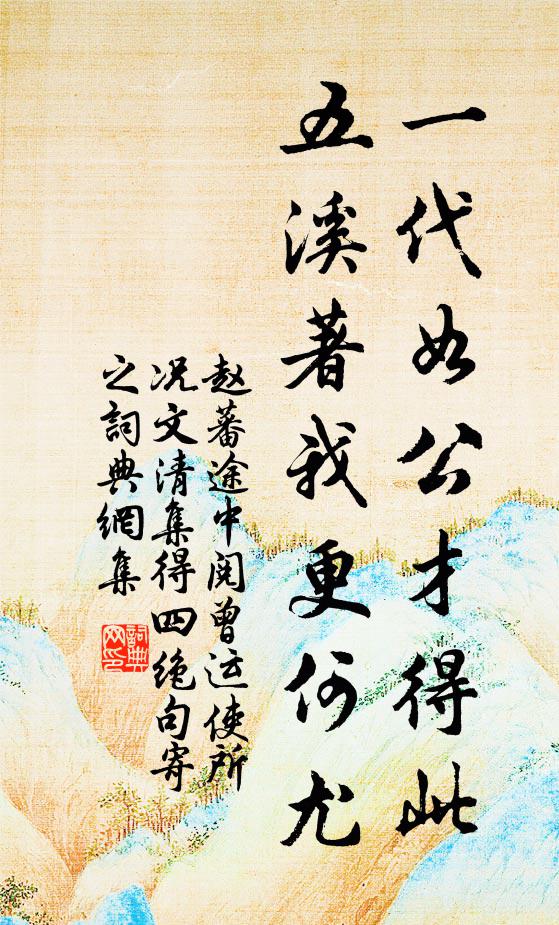 一代如公才得此
五溪著我更何尤
赵蕃途中阅曾运使所
况文清集得四绝句寄
之詞典網集
詞典網印